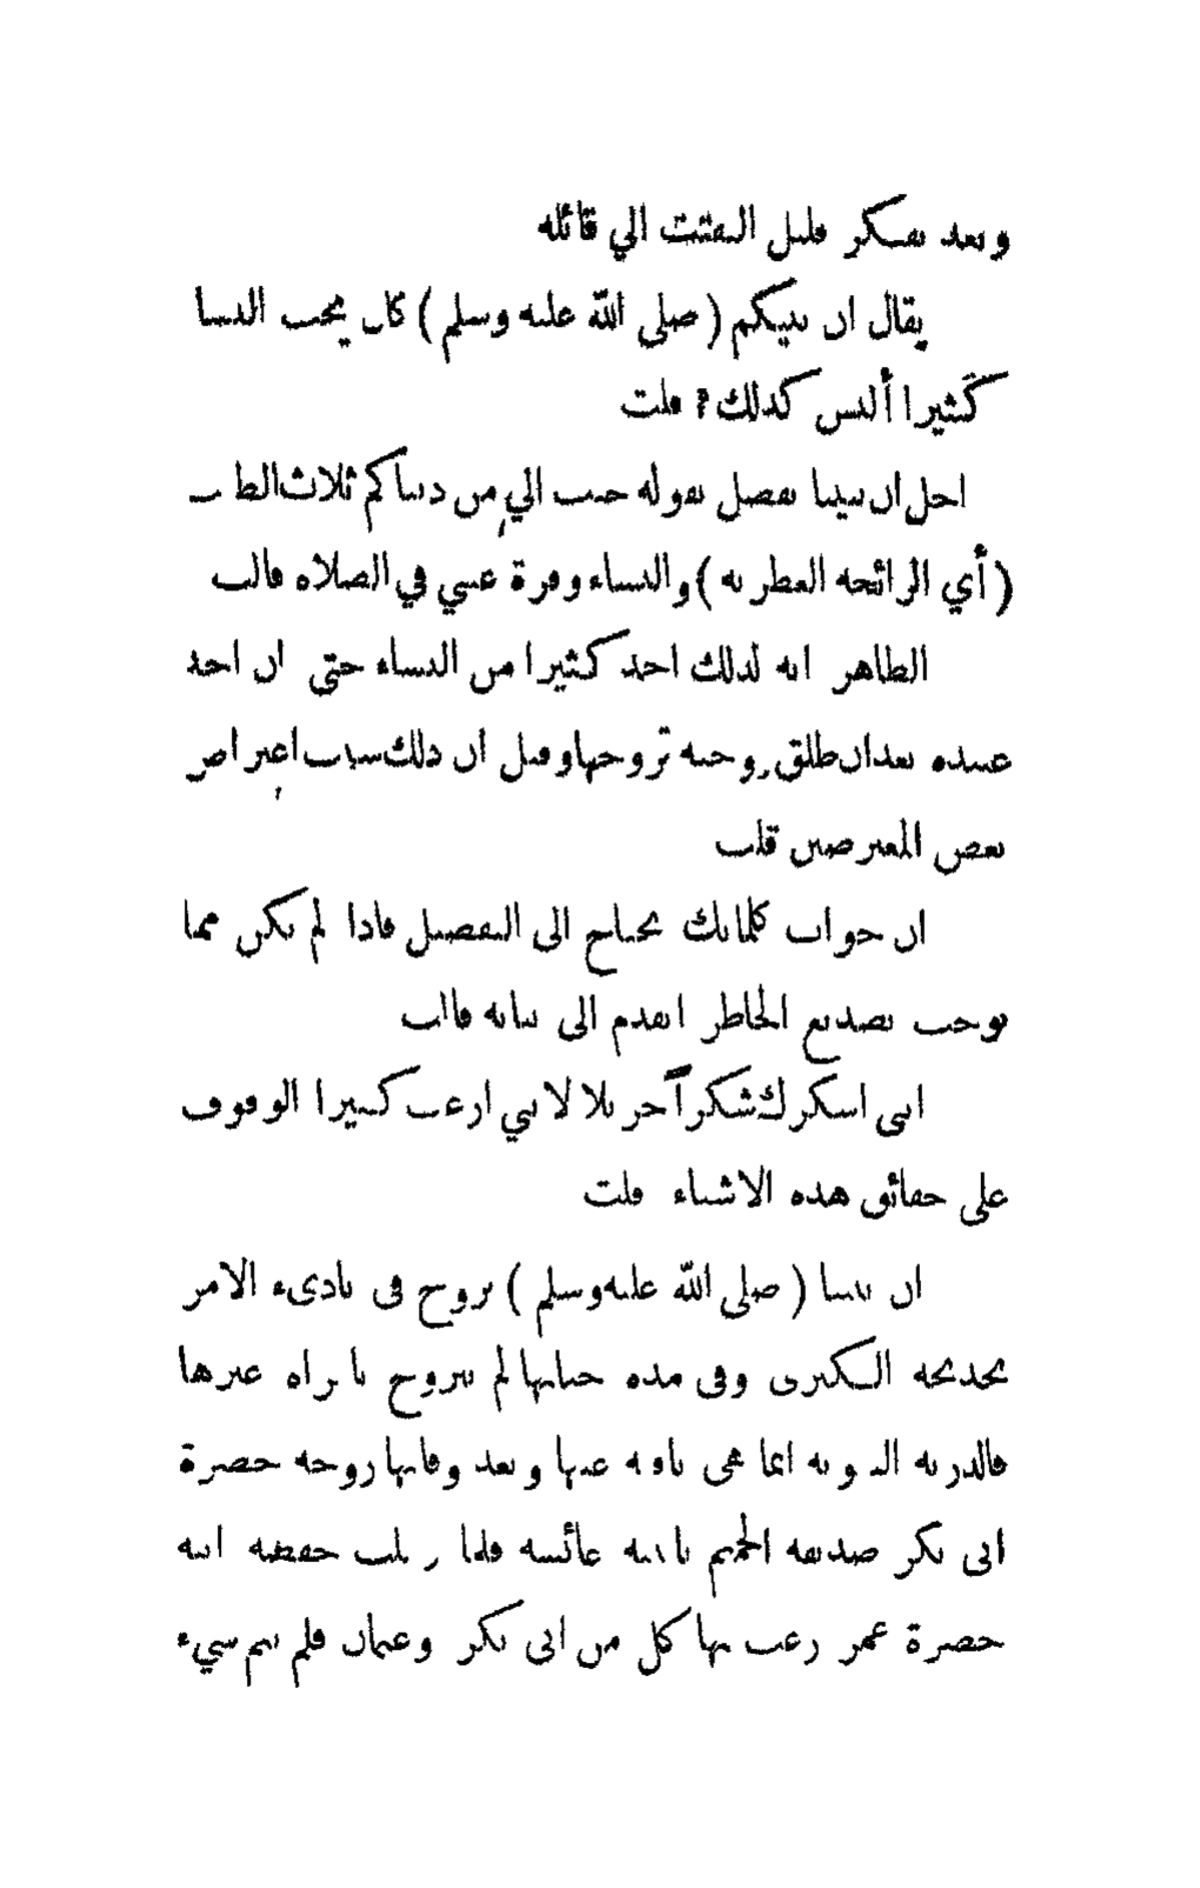 وبعد تفكر قليل التفتت الي قائله
يقال ان نبيكم (صلى الله عليه وسلم) كان يحب النسا
كثيرا أليس كذلك ؟ قلت
اجل ان نبينا تفضل بقوله حبب الي من دنياكم ثلاث الطيب
(أي الرائحه العطريه) والنساء وقرة عيني في الصلاه قالت
الظاهر انه لذلك اخذ كثيرا من النساء حتى ان احد
عبيده بعد ان طلق زوجته تزوجها وقيل ان ذلك سبب اعتراض
بعض المعترضين قلت
ان جواب كلماتك يحتاج الى التفصيل فاذا لم يكن مما
يوجب تصديع الخاطر اتقدم الى بيانه قالت
اني اشكرك شكرآ جزيلا لانني ارغب كثيرا الوقوف
على حقائق هذه الاشياء قلت
ان نبينا (صلى الله عليه وسلم) تزوج في بادىء الامر
بخديجه الكبرى وفي مده حياتها لم يتزوج بامراه غيرها
فالذريه النبويه انما هي باقيه عنها وبعد وفاتها زوجه حضرة
ابي بكر صديقه الحميم بابنته عائشه فلما ترملت حفصه ابنة
حضرة عمر رغب بها كل من ابي بكر وعثمان فلم يتم شيء